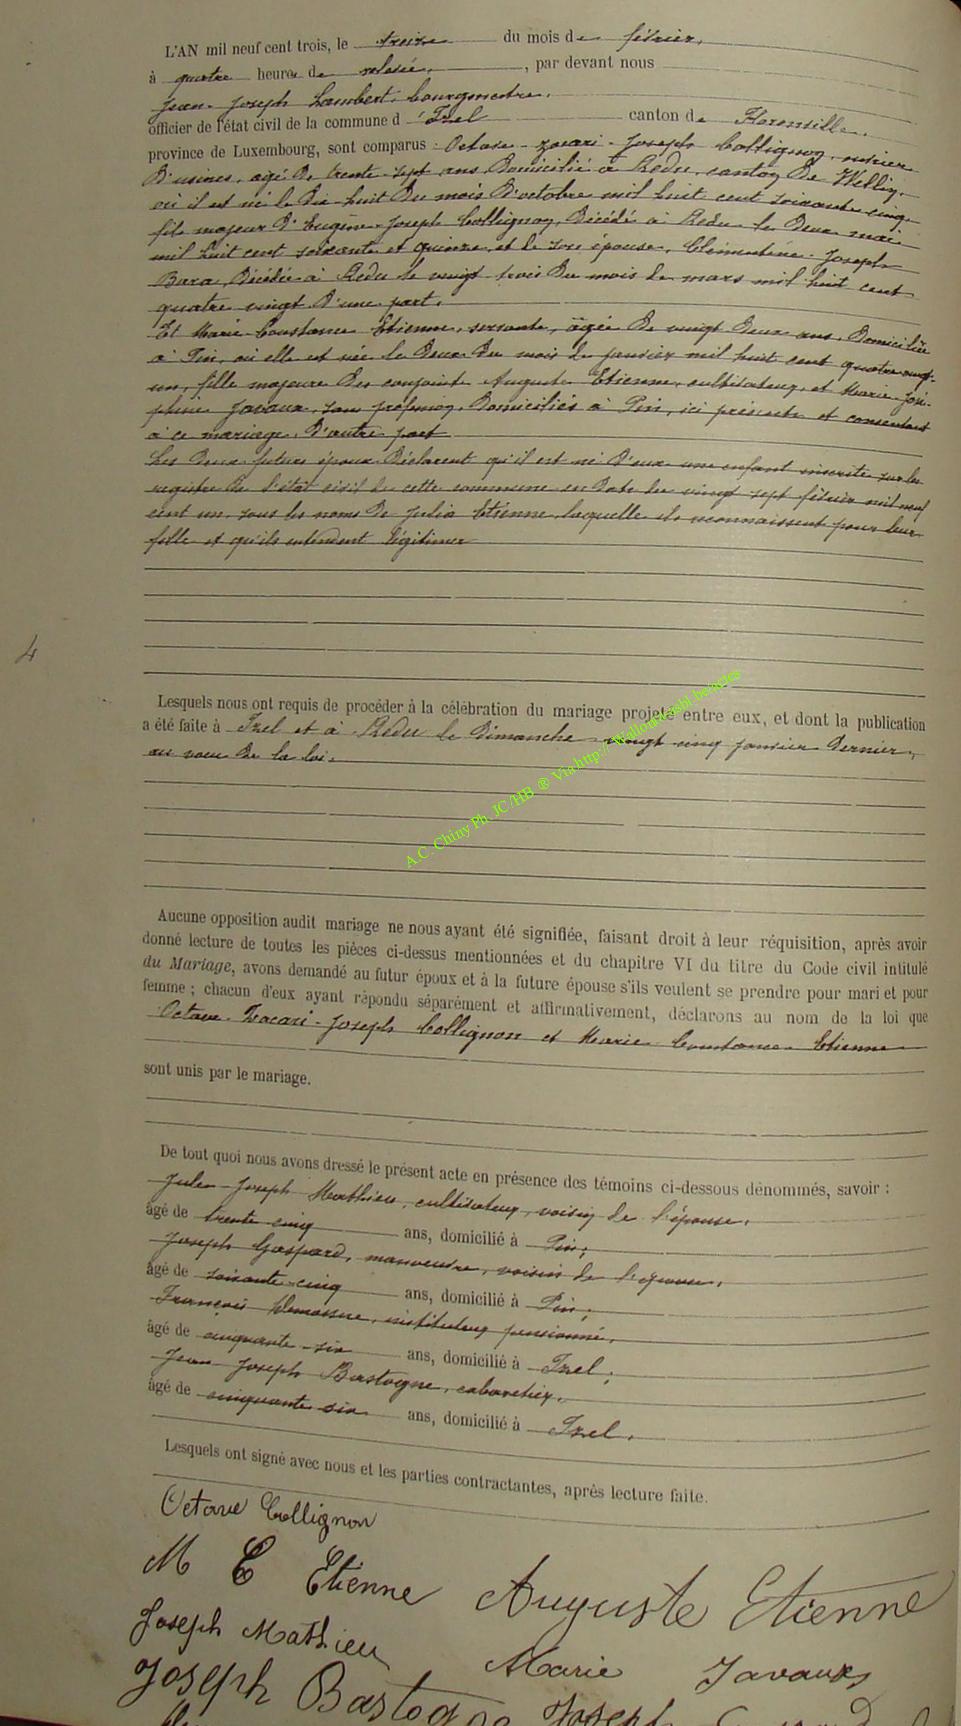 L'AN mil neuf cent trois, le treize du mois de février,
à quatre heures de relevée, par devant nous
Jean-Joseph Lambert, bourgmestre,
officier de l'état civil de la commune d'Izel canton de Florenville,
province de Luxembourg, sont comparus : Octave - Zacari - Joseph Collignon, ouvrier
d'usines, agé de trente-sept ans domicilié à Redu, canton de Wellin,
où il est né le dix-huit du mois d'octobre mil huit cent soixante cinq,
fils majeur d'Eugène-Joseph Collignon, décédé à Redu le deux mai
mil huit cent soixante et quinze, et de son épouse, Clémentine-Joseph
Bara, décédée à Redu le vingt trois du mois de mars mil huit cent
quatre vingt d'une part.
Et Marie Constance Etienne, servante, âgée de vingt deux ans, domiciliée
à Pin, où elle est née le deux du mois de janvier mil huit cent quatre vingt-
un, fille majeure des conjoint Auguste Etienne, cultivateur, et Marie José-
phine Javaux, sans profession, domiciliés à Pin, ici présents et consentant
à ce mariage, d'autre part
Les deux futurs époux déclarent qu'il est né d'eux une enfant inscrite sur les
registre de l'état civil de cette commune en date du vingt sept février mil neuf
cent un, sous les noms de Julia Etienne, laquelle ils reconnaissent pour leur
fille et qu'ils entendent légitimer
4
Lesquels nous ont requis de procéder à la célébration du mariage projeté entre eux, et dont la publication
a été faite à Izel et à Redu le dimanche vingt cinq janvier dernier,
au voeu de la loi.
A.C. Chiny Ph. JC/HB ® Via http://Wallonia asbl beneles
Aucune opposition audit mariage ne nous ayant été signifiée, faisant droit à leur réquisition, après avoir
donné lecture de toutes les pièces ci-dessus mentionnées et du chapitre VI du titre du Code civil intitulé
du Mariage, avons demandé au futur époux et à la future épouse s'ils veulent se prendre pour mari et pour
femme ; chacun d'eux ayant répondu séparément et affirmativement, déclarons au nom de la loi que
Octave - Zacari - Joseph Collignon et Marie Constance Etienne
sont unis par le mariage.
De tout quoi nous avons dressé le présent acte en présence des témoins ci-dessous dénommés, savoir :
Jules Joseph Mathieu, cultivateur, voisin de l'épouse,
âgé de trente cinq ans, domicilié à Pin ;
Joseph Gaspard, manoeuvre, voisin de l'épouse,
âgé de soixante-cinq ans, domicilié à Pin ;
François, instituteur pensionné,
âgé de cinquante-six ans, domicilié à Izel ;
Jean Joseph Bastogne, cabaretier,
âgé de cinquante six ans, domicilié à Izel.
Lesquels ont signé avec nous et les parties contractantes, après lecture faite.
Octave Collignon
M C Etienne Auguste Etienne
Joseph Mathieu Marie Javaux
Joseph Bastogne Joseph